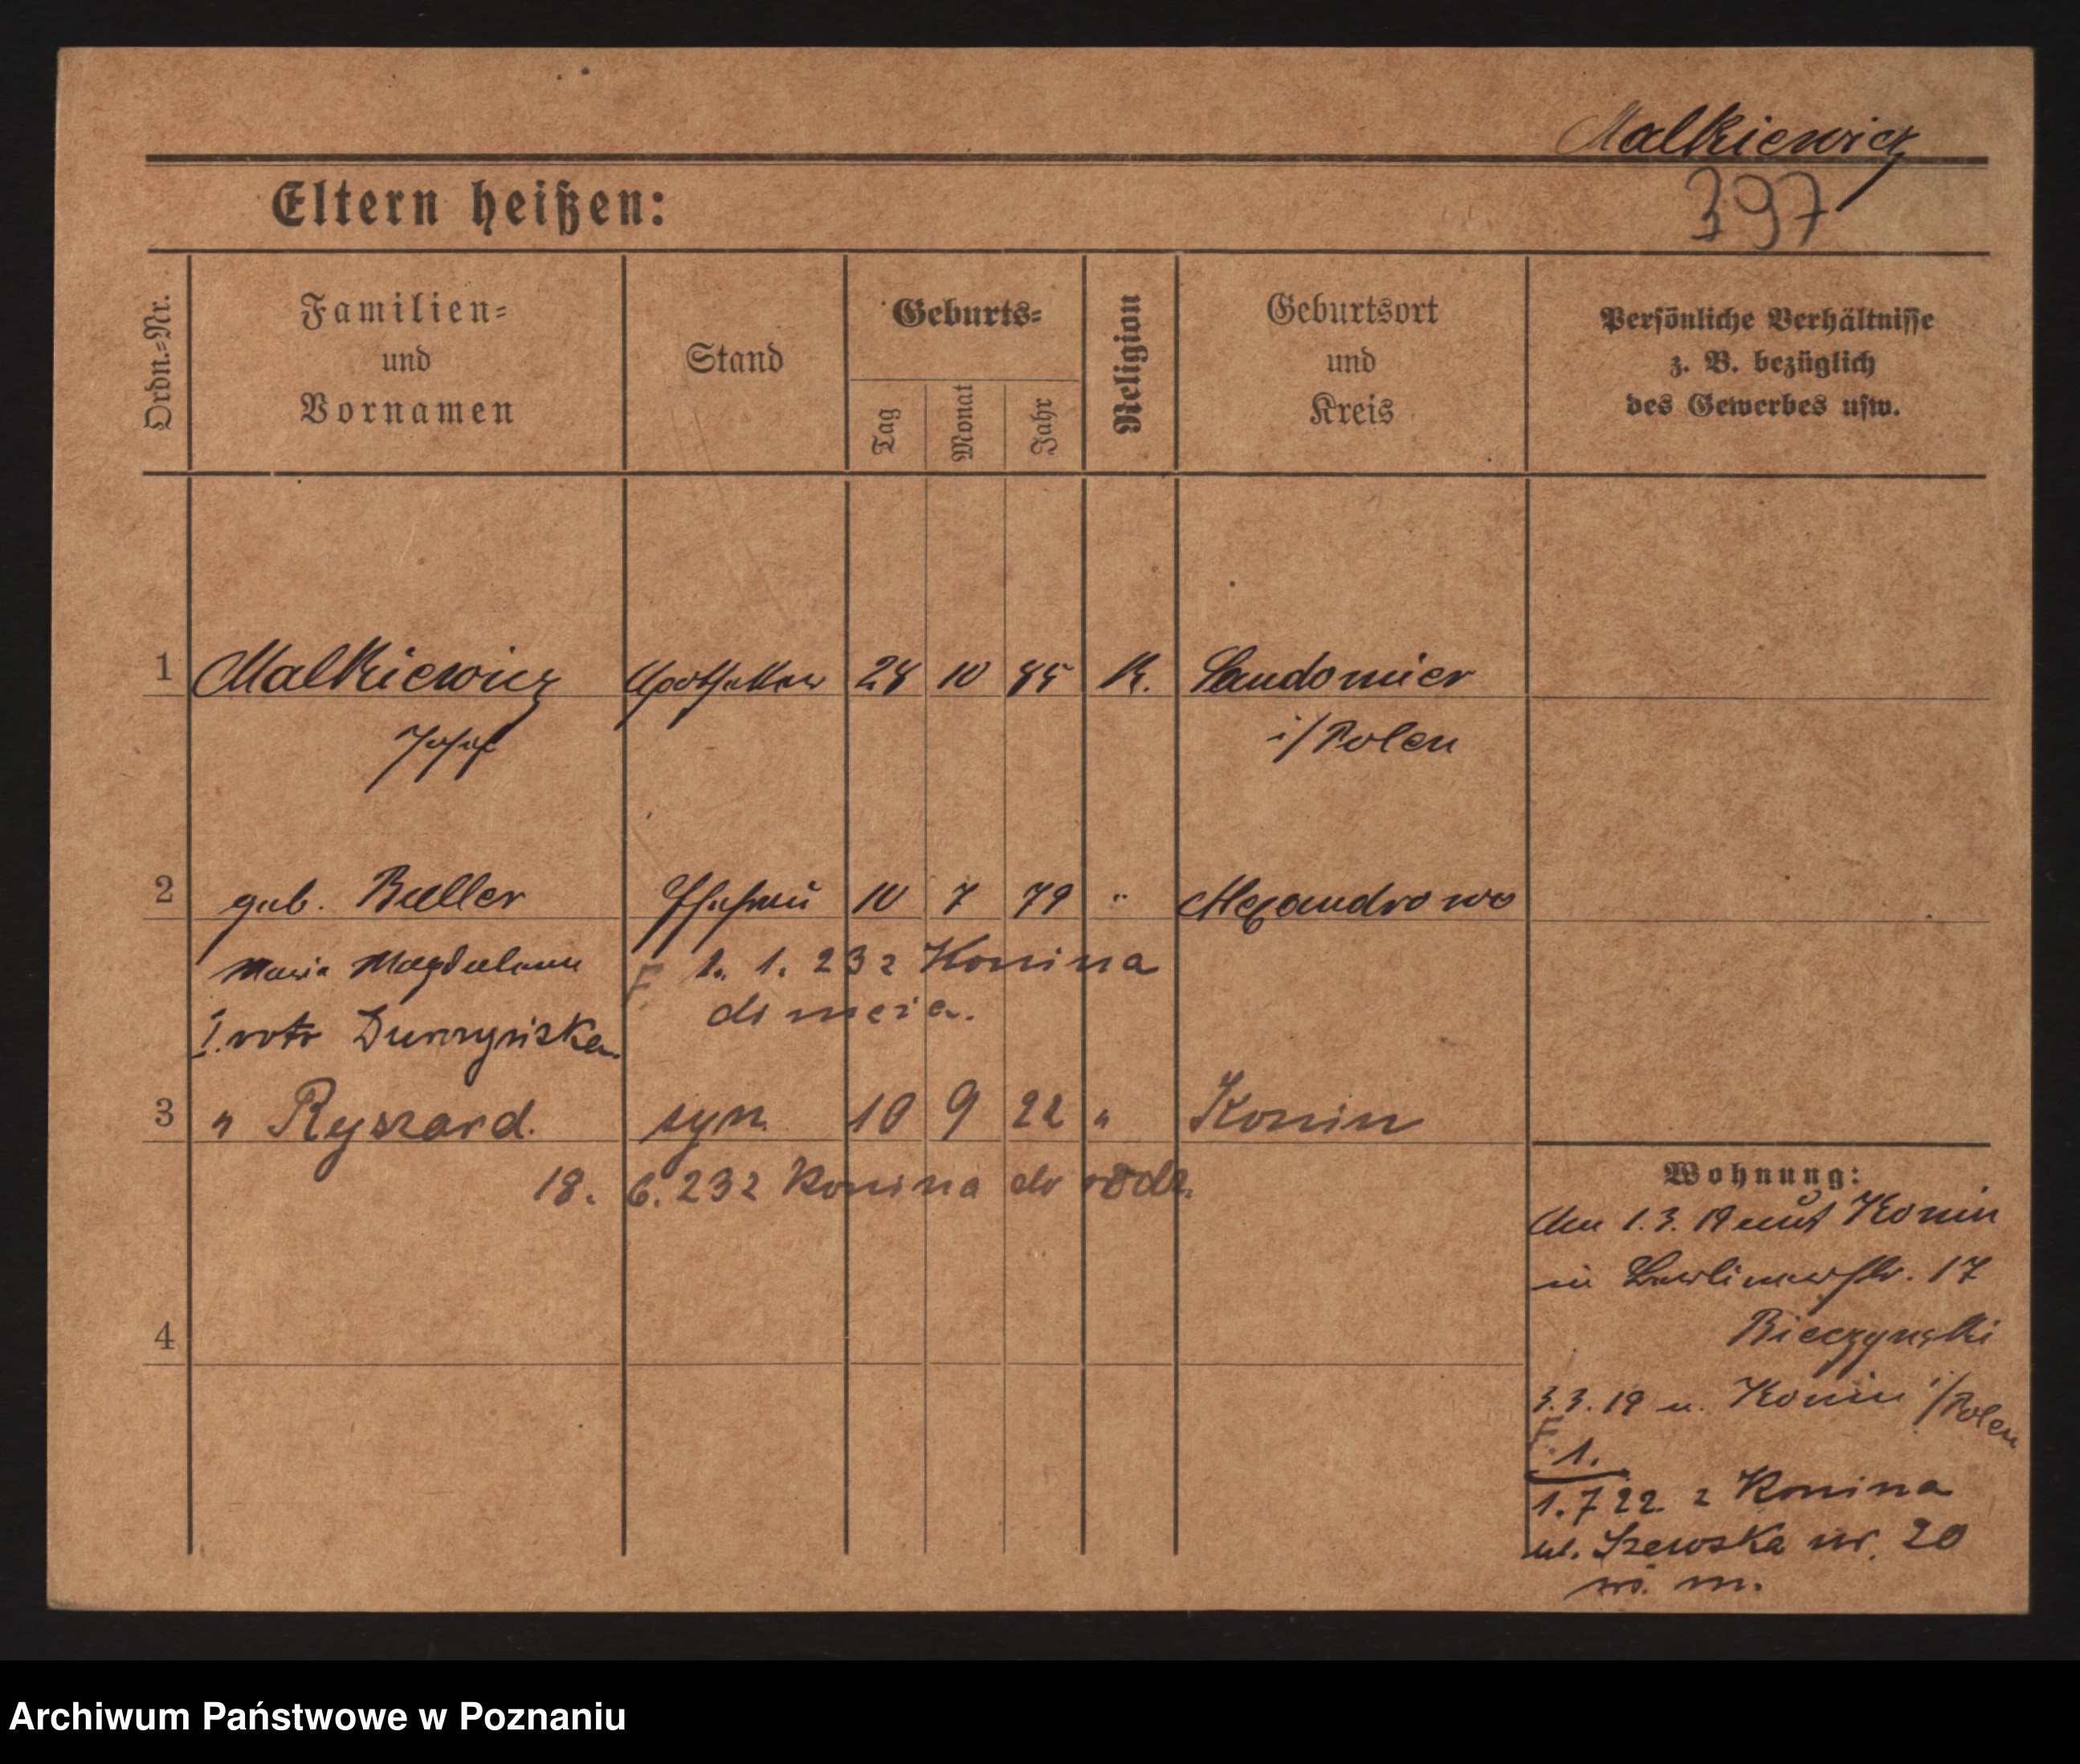 Malkiewicz
397
Eltern heißen:
Ordn.=Nr.
Familien=
und
Vornamen
Stand
Geburts=
Tag
Monat
Jahr
Religion
Geburtsort
und
Kreis
Persönliche Verhältnisse
z. B. bezüglich
des Gewerbes usw.
1 Malkiewicz Apotheker 28 10 85 K. Sandomier
Josef i/Polen
2 geb. Buller Ehefrau 10 7 79 " Alexandrowo
Maria Magdalena F. 1. 1. 23 z Konina
I. voto do męża.
3 " Ryszard. syn 10 9 22 " Konin
18. 6. 23 z Konina do rodz.
4
Wohnung:
Am 1.3.19 aus Konin
in Berlinerstr. 17
Bieczynski
3.3.19 n. Konin i/Polen
F. 1.
1.7 22. z Konina
ul. Szewska nr. 20
m.
Archiwum Państwowe w Poznaniu